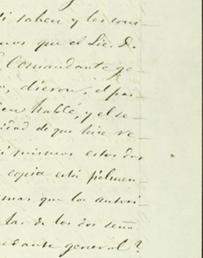 saben y les cons
mos que el Lic. D.
Comandante ge-
o, dieron, el par-
bien hablé, y el se-
cidad de que hice ve-
mismos estos dos
copia está fielmen-
mas que los autori-
ta. de los dos seño
ndante general?